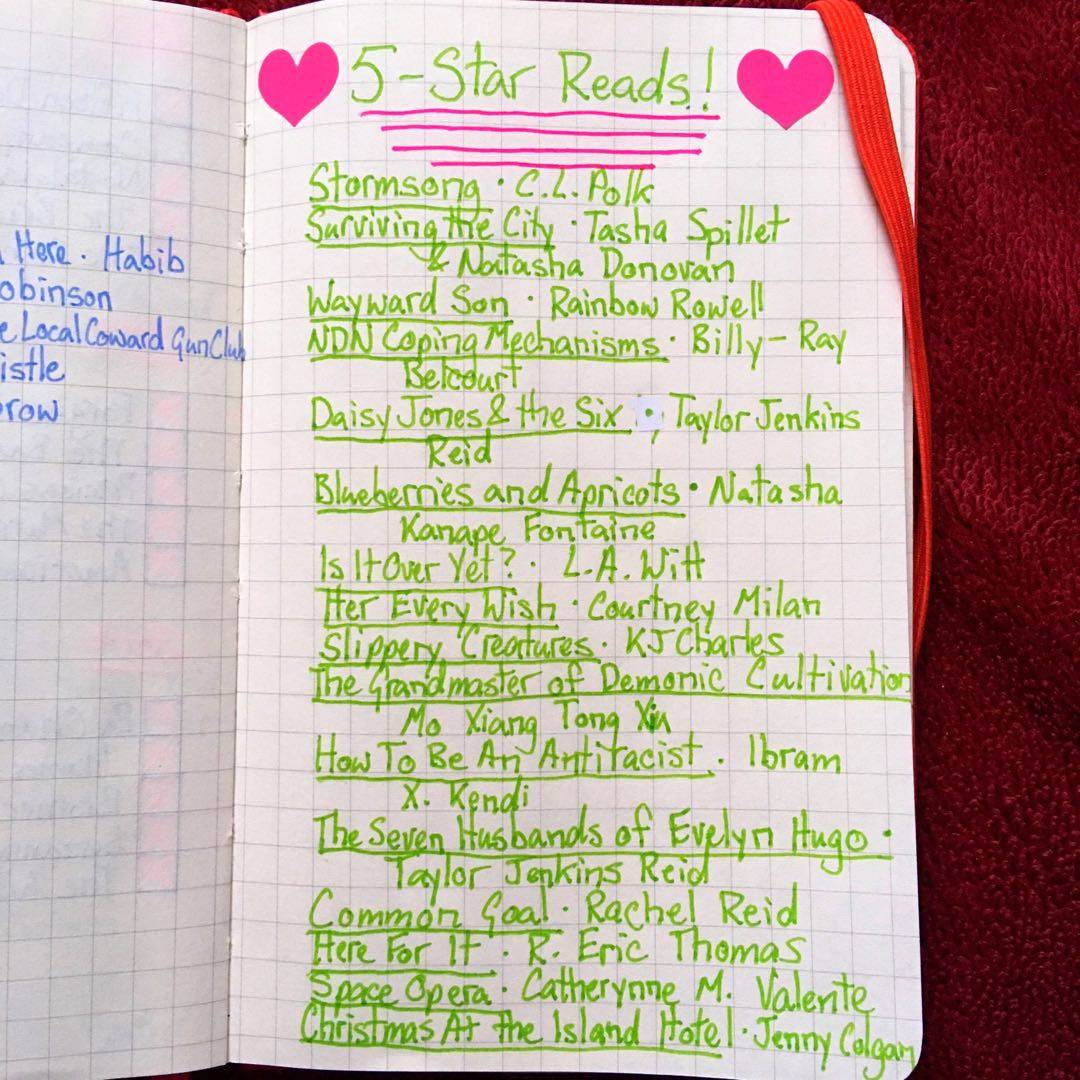 Here · Habib
obinson
Local Coward Gun Club
istle
row
5-Star Reads!
Stormsong · C.L. Polk
Surviving the City · Tasha Spillet
& Natasha Donovan
Wayward Son · Rainbow Rowell
NDN Coping Mechanisms · Billy-Ray
Belcourt
Daisy Jones & the Six · Taylor Jenkins
Reid
Blueberries and Apricots · Natasha
Kanape Fontaine
Is It Over Yet? · L.A. Witt
Her Every Wish · Courtney Milan
Slippery Creatures · KJ Charles
The Grandmaster of Demonic Cultivation
Mo Xiang Tong Xiu
How To Be An Antiracist · Ibram
X. Kendi
The Seven Husbands of Evelyn Hugo ·
Taylor Jenkins Reid
Common Goal · Rachel Reid
Here For It · R. Eric Thomas
Space Opera · Catherynne M. Valente
Christmas At the Island Hotel · Jenny Colgan